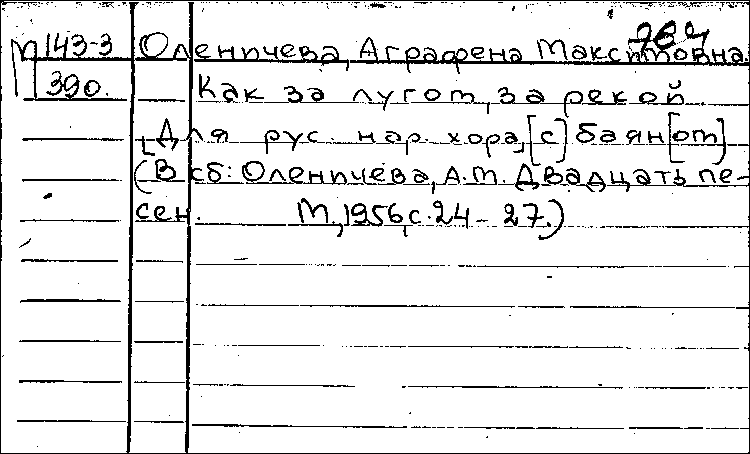 М143-3 Оленичева, Аграфена Максимовна.
390. Как за лугом, за рекой.
[Для рус. нар. хора, [с] баян[ом]
(В сб: Оленичева, А.М. Двадцать пе-
сен. М., 1956, с. 24-27.)